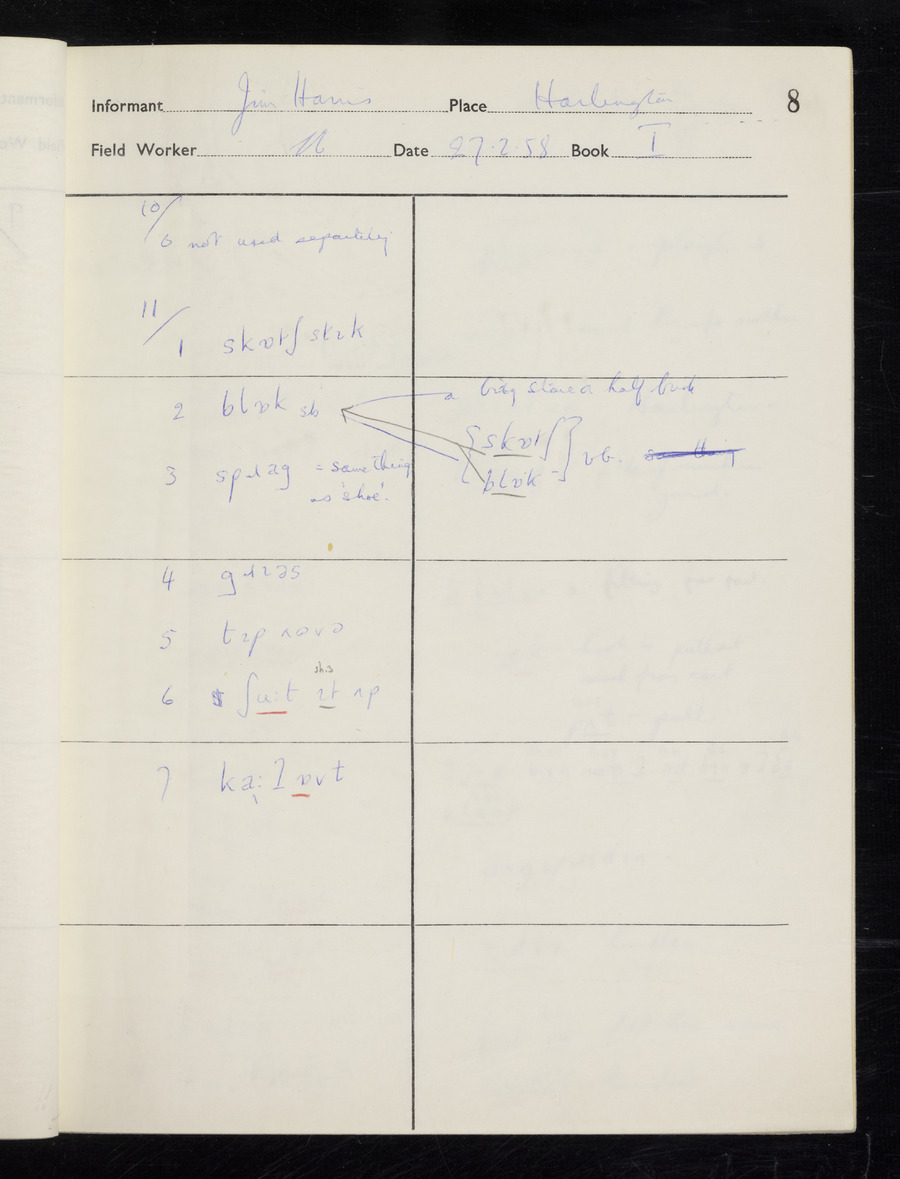 Informant Jim Harris Place Harlington 8
Field Worker Date 27.2.58 Book I
10/
6 not used separately
11/
1 skɒtʃ stɪk
2 blɒk sb
a big stone a half brick
{skɒtʃ
blɒk} vb.
3 spɹag = same thing
as 'shoe'.
4 gɹɪəs
5 tɪp ʌʊvə
sh.s
6 ʃu:t ɪt ʌp
7 ka:ʔ ɒvt